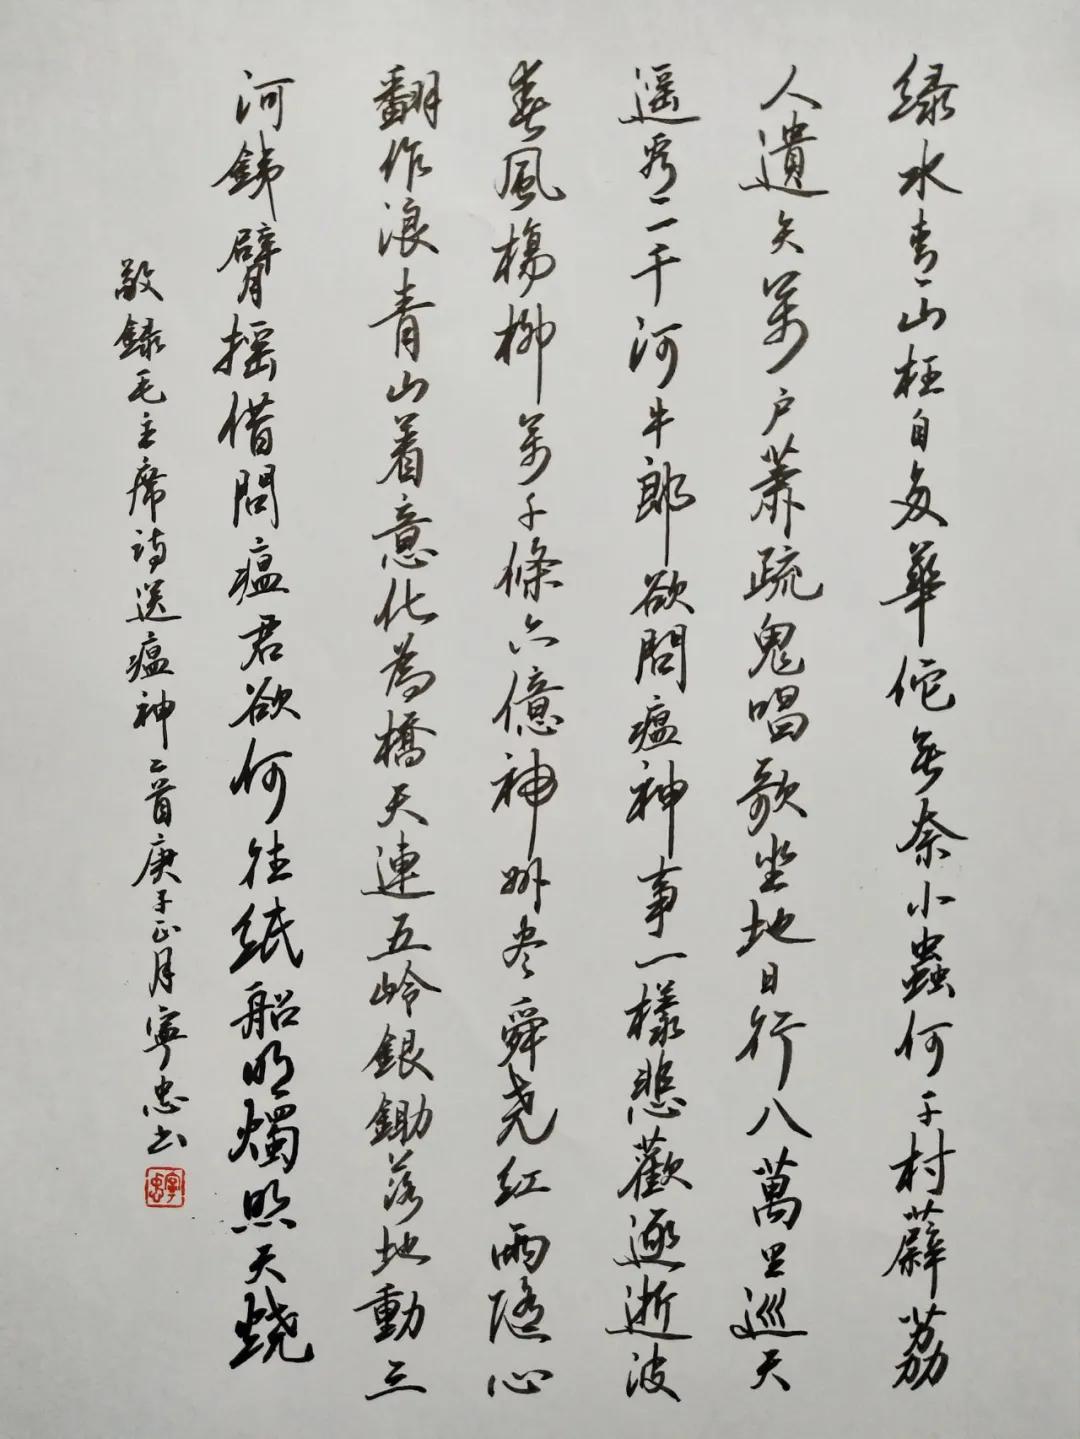 绿水青山枉自多華佗無奈小蟲何千村薜荔
人遺矢萬户蕭疏鬼唱歌坐地日行八萬里巡天
遥看一千河牛郎欲問瘟神事一樣悲歡逐逝波
春風楊柳萬千條六億神州尽舜尧红雨隨心
翻作浪青山着意化為橋天連五岭銀鋤落地動三
河銕臂摇借問瘟君欲何往紙船明燭照天燒
敬録毛主席诗送瘟神二首庚子正月寧忠书